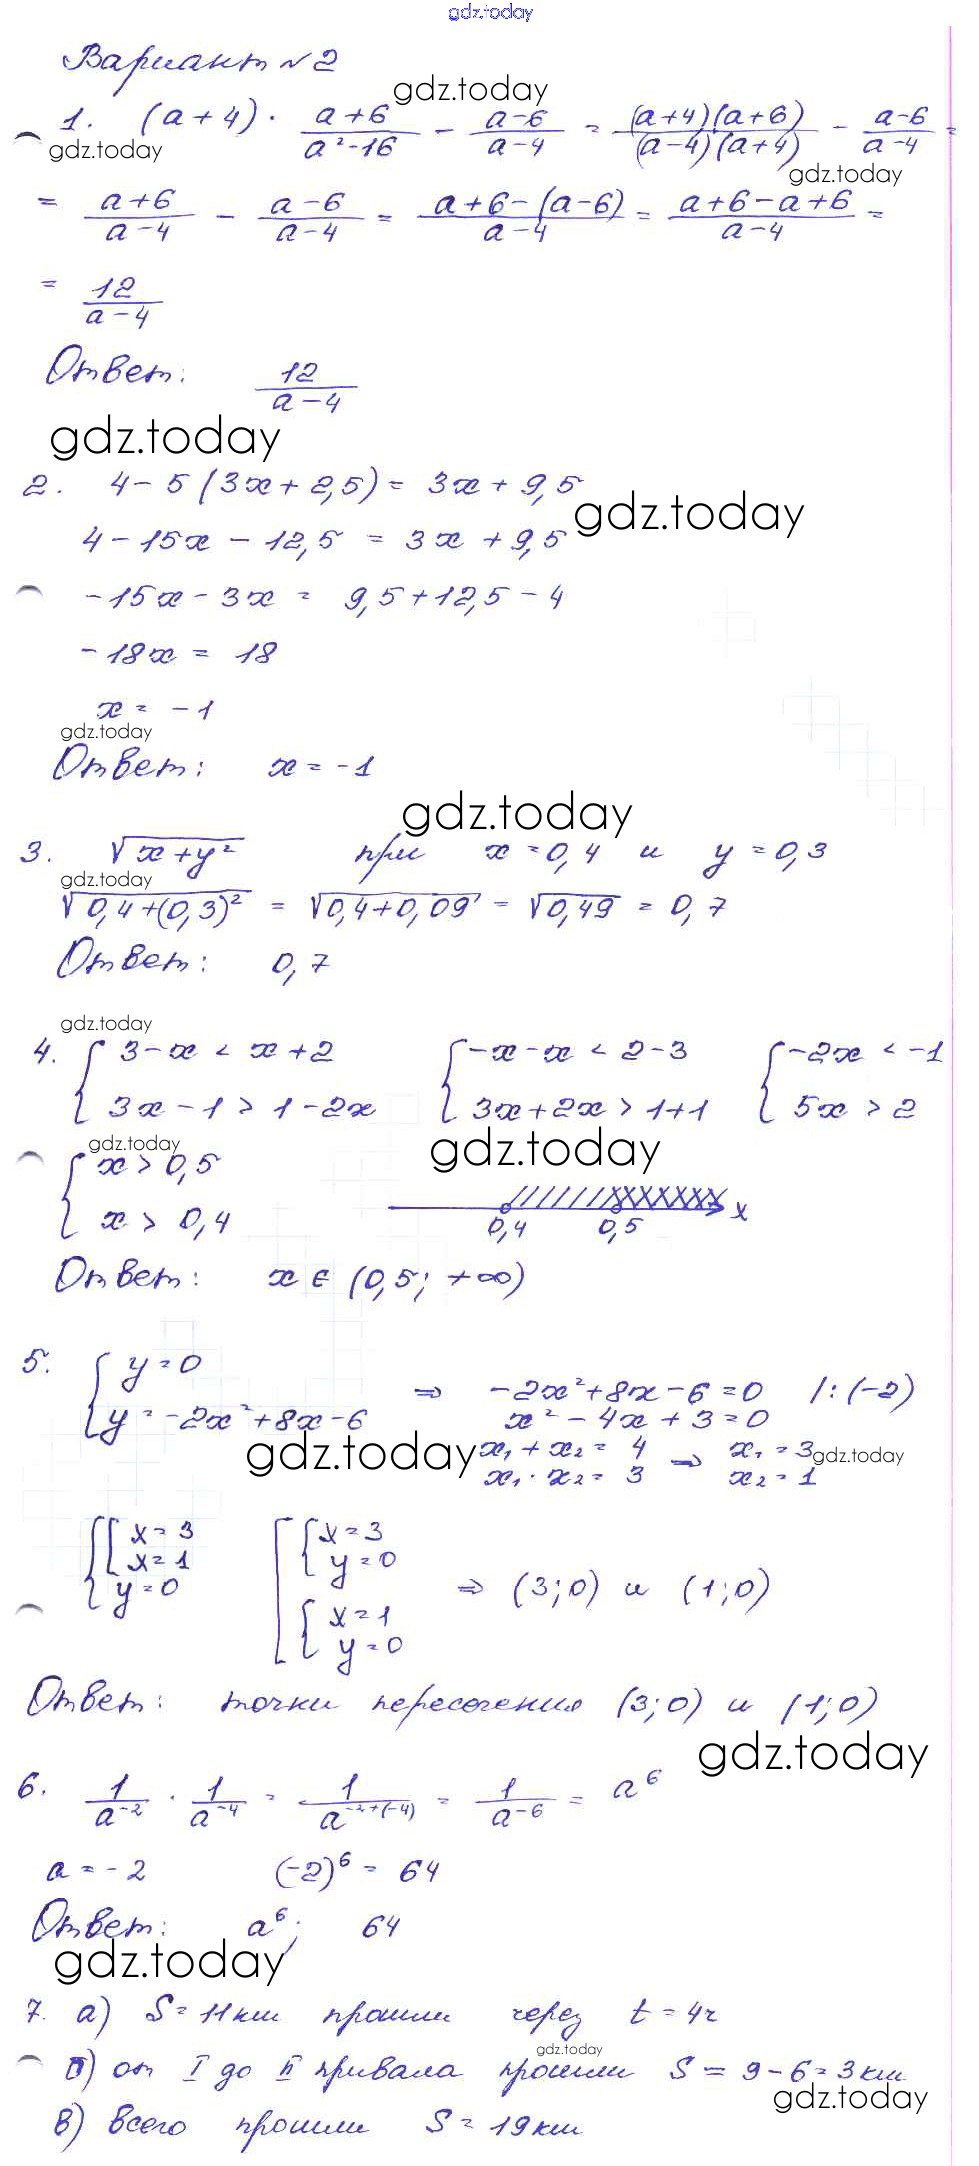 gdz.today
Вариант №2
gdz.today
1. (a+4) · (a+6)/(a²-16) - (a-6)/(a-4) = ((a+4)(a+6))/((a-4)(a+4)) - (a-6)/(a-4) =
gdz.today
gdz.today
= (a+6)/(a-4) - (a-6)/(a-4) = (a+6-(a-6))/(a-4) = (a+6-a+6)/(a-4) =
= 12/(a-4)
Ответ: 12/(a-4)
gdz.today
2. 4-5(3x+2,5) = 3x+9,5
gdz.today
4-15x-12,5 = 3x+9,5
-15x-3x = 9,5+12,5-4
-18x = 18
x = -1
gdz.today
Ответ: x = -1
gdz.today
3. √(x+y²) при x=0,4 и y=0,3
gdz.today
√(0,4+(0,3)²) = √(0,4+0,09) = √0,49 = 0,7
Ответ: 0,7
gdz.today
4. { 3-x < x+2 { -x-x < 2-3 { -2x < -1
3x-1 > 1-2x 3x+2x > 1+1 5x > 2
gdz.today
gdz.today
{ x > 0,5
x > 0,4
0,4 0,5 x
Ответ: x ∈ (0,5; +∞)
5. { y=0
y=-2x²+8x-6 ⇒ -2x²+8x-6=0 /:(-2)
x²-4x+3=0
gdz.today
x₁+x₂ = 4 ⇒ x₁=3
x₁·x₂ = 3 x₂=1
gdz.today
{ [ x=3 [ { x=3
x=1 y=0
y=0 { x=1
y=0
⇒ (3;0) и (1;0)
Ответ: точки пересечения (3;0) и (1;0)
gdz.today
6. 1/a⁻² · 1/a⁻⁴ = 1/a⁻²⁺⁽⁻⁴⁾ = 1/a⁻⁶ = a⁶
a = -2 (-2)⁶ = 64
Ответ: a⁶; 64
gdz.today
7. а) S=11км прошли через t=4ч
gdz.today
б) от I до II привала прошли S = 9-6=3км
gdz.today
в) всего прошли S=19км